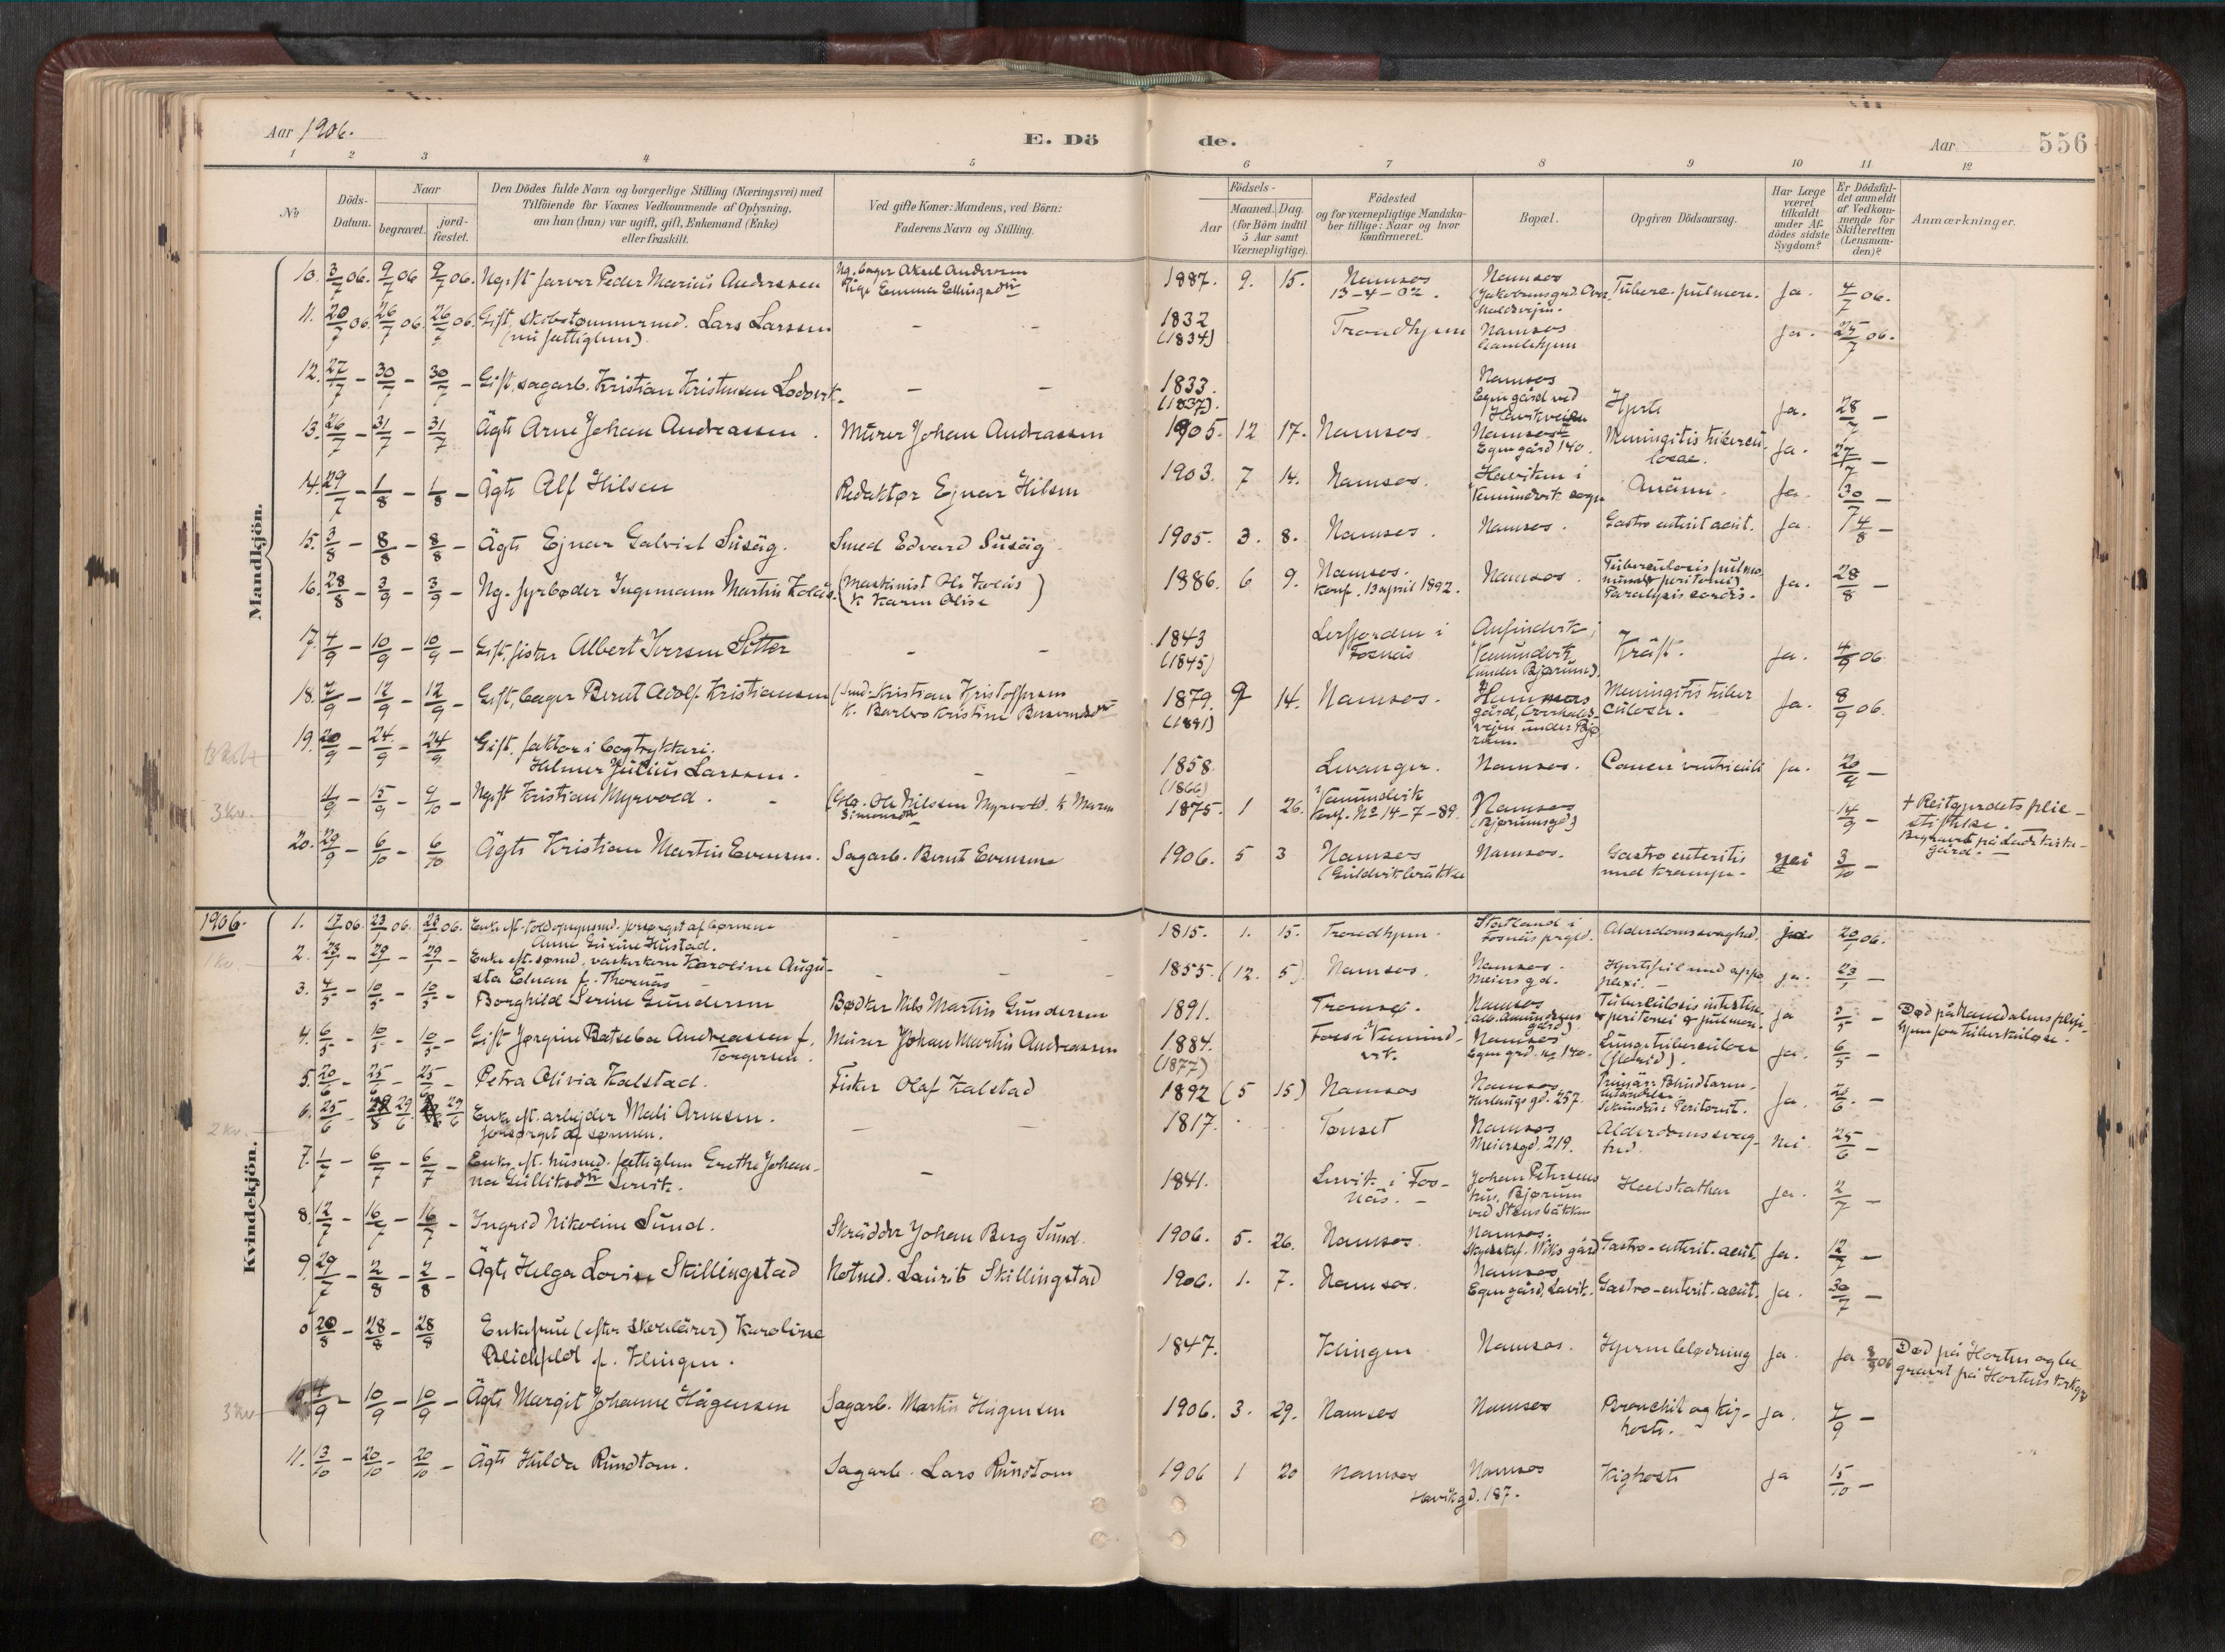 Aar 1906.
E. Dö
de.
Aar
556
1 2 3 4 5 6 7 8 9 10 11 12
No
Döds-Datum.
Naar
begravet.
jord-fæstet.
Den Dödes fulde Navn og borgerlige Stilling (Næringsvei) med
Tilföiende for Voxnes Vedkommende af Oplysning,
om han (hun) var ugift, gift, Enkemand (Enke)
eller fraskilt.
Ved gifte Koner: Mandens, ved Börn:
Faderens Navn og Stilling.
Födsels-
Aar
Maaned. Dag.
(for Börn indtil
5 Aar samt
Værnepligtige).
Födested
og for værnepligtige Mandska-
ber tillige: Naar og hvor
konfirmeret.
Bopæl.
Opgiven Dödsaarsag.
Har Læge
været
tilkaldt
under Af-
dödes sidste
Sygdom?
Er Dödsfal-
det anmeldt
af Vedkom-
mende for
Skifteretten
(Lensman-
den)?
Anmærkninger.
Mandkjön.
10. 3/7 06. 9/7 06 9/7 06. Ugift farver Peder Marius Anderssen Ug. bager Aksel Andersen 1887. 9. 15. Namsos Namsos Tuberc. pulmon. Ja. 4/7 06.
Pige Emma 13-4-02.
11. 20/7 06. 26/7 06. 26/7 06. Gift, skibstømmermd. Lars Larssen - - 1832 Trondhjem Namsos Ja. 25/7 06.
(nu fattiglem) (1834) Gamlehjem
12. 27/7 - 30/7 - 30/7 - Gift, sagarb. Kristian Kristensen - - 1833. Namsos
(1837). Egen gård ved Hjerte Ja. 28/7 -
13. 26/7 - 31/7 - 31/7 Ägte Arne Johan Andreassen. Murer Johan Andreassen 1905. 12 17. Namsos. Namsos Meningitis tubercu- Ja. 27/7 -
Egen gård 140. losae.
14. 29/7 - 1/8 - 1/8 - Ägte Alf Hilsen Redaktør Ejnar Hilsen 1903. 7 14. Namsos. Havíken i Anämi. Ja. 30/7 -
Vemundvik sogn
15. 3/8 - 8/8 - 8/8 - Ägte Ejnar Galvin Susäg. Smed Edvard Susäg. 1905. 3. 8. Namsos. Namsos. Gastro enterit acut. Ja. 4/8 -
16. 28/8 - 3/9 - 3/9 - Ug. fyrbøder Ingemann Martin Kolås. (Maskinist Ole Kolås 1886. 6 9. Namsos. Namsos. Tuberculosis pulmo- Ja. 28/8 -
K Karen Olise ) Konf. 13 april 1892. num & peritonei)
Paralysis cordis.
17. 4/9 - 10/9 - 10/9 - Gift, fisker Albert Iversen Setter - - 1843 Lerfjorden i Kräft. Ja. 4/9 06.
(1845) Fosnäs Vemundvik
(under Bjørum).
18. 7/9 - 12/9 - 12/9 - Gift, bager Bernt Adolf Kristiansen (Smd. Kristian Kristoffersen 1879. 9 14. Namsos. Hammers Meningitis tuber Ja. 8/9 06.
K. Barbro Kristine (1891) gård, culosa.
19. 20/9 - 24/9 - 24/9 Gift, faktor i bogtrykkeri.
Helmer Julius Larssen. - - 1858 Levanger. Namsos. Cancer ventriculi Ja. 20/9 -
(1866)
3 Kv. 11/9 - 15/9 - 9/10 - Ugift Kristian Myrvold. - (Gbr. Ole Nilsen Myrvold. K Maren 1875. 1 26. Vemundvik Namsos 14/9 - † Reitgjerdets pleie-
Simonsdtr. Konf. No 14-7-89. (Bjørumsgd) stiftelse.
Begravet på Lade kirke-
gård. -
20. 29/9 - 6/10 - 6/10 Ägte Kristian Martin Evensen. Sagarb. Bernt Evensen 1906. 5 3 Namsos Namsos. Gastro enteritis nei 3/10 -
(Guldvikbräkka med krampe.
1906.
Kvindekjön.
1. 17/1 06. 23/1 06. 23/1 06. forsørget af børnene
Anne Hustad. - - 1815. 1. 15. Trondhjem. Statland i Alderdomssvaghed. ja 20/1 06.
Fosnäs prgld.
1 Kv.
2. 23/1 - 29/1 - 29/1 - Enke eft. sømd. vaskerkone Karoline Augu-
sta f. Thornäs - - 1855. (12. 5). Namsos. Namsos. Hjertefeil med apo- ja. 23/1 -
Meiers gd. plexi. -
3. 4/5 - 10/5 - 10/5 - Borghild Serine Gundersen Bødker Nils Martin Gundersen 1891. Tromsø. Namsos Tuberculosis intestin. ja 5/5 - Død på Namdalens pleje-
(Alb. Amundsens gård) & peritonei & pulmon. hjem for tuberkuløse.
4. 6/5 - 10/5 - 10/5 - Gift Jørgine Batseba Andreassen f. Murer Johan Martin Andreassen 1884. Fosså Vemund- Namsos Lungetuberculose Ja. 6/5 -
Torgersen. (1877) vik. Egen grd. No 140. (florid).
5. 20/6 - 25/6 - 25/6 - Petra Olivia Kalstad. Fisker Olaf Kalstad 1892 (5 15) Namsos Namsos Primär: Blindtarm- Ja. 21/6 -
Herlaugs gd. 257. betändelse.
Sekundär: Peritonit.
2 Kv.
6. 25/6 - 29/6 29/6 Enke eft. arbejder Mali Arnesen. - - 1817. Tønset Namsos Alderdomssvag- nei. 25/6 -
forsørget af sønnen. Meiersgd. 219. hed.
7. 1/7 - 6/7 - 6/7 - Enke, eft. husmd. fattiglem Grethe Johan-
na Gulliksdtr Servik. - 1841. Servik i Fos- Johan Petersens Ja. 2/7 -
näs. - hus, Bjørum
ved Stensbäkken
8. 12/7 - 16/7 - 16/7 - Ingrid Nikoline Sund. Skrädder Johan Berg Sund. 1906. 5. 26. Namsos. Namsos. Gastro-enterit. acut. Ja. 12/7 -
Wiks gård
9. 29/7 - 2/8 - 2/8 - Ägte Helga Lovise Skillingstad Notmd. Laurits Skillingstad 1906. 1. 7. Namsos. Namsos Gastro-enterit. acut. Ja. 30/7 -
Egen gård,
0 20/8 - 28/8 - 28/8 Enkefrue (efter skolelärer) Karoline
Bleichfeldt f. Klingen. 1847. Klingen Namsos. Hjerneblødning Ja. Ja 3/9 06 Død på Horten og be-
gravet på Hortens kirkegd
3 Kv
4/9 - 10/9 - 10/9 - Ägte Margit Johanne Hågensen Sagarb. Martin Hågensen 1906. 3. 29. Namsos Namsos Bronchit og kig- Ja. 7/9 -
hoste.
11. 13/10 - 20/10 - 20/10 - Ägte Hulda Rundtom. Sagarb. Lars Rundtom 1906 1 20 Namsos Namsos Kighoste Ja 15/10 -
Havikgd. 187.